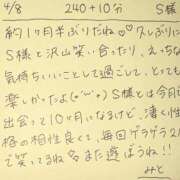 4/8 240+10分 S様
約1ヶ月半ぶりだね♡♡久しぶりに
S様と沢山笑い合ったり、えっちな
気持ちいいことして過ごして、とっても
楽しかったよ(๑'ᵕ'๑) S様とは今日で
出会って10ヶ月になるけど、凄く性
格の相性良くて、毎回ゲラゲラ2人
で笑ってるね♡また遊ぼうね!!
みと